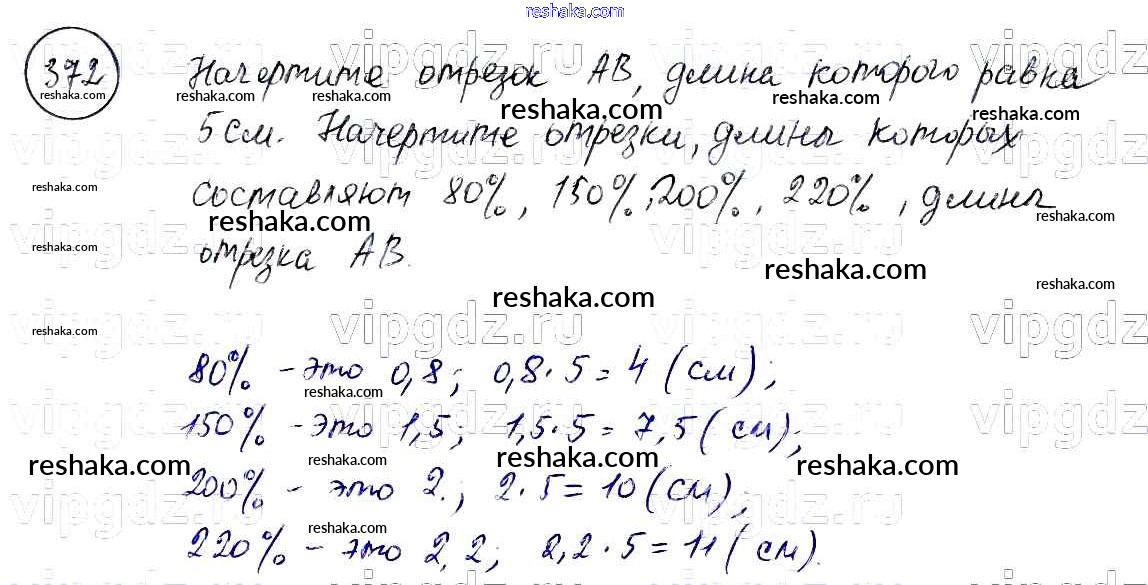 reshaka.com
372 Начертите отрезок АВ, длина которого равна
reshaka.com reshaka.com reshaka.com reshaka.com reshaka.com reshaka.com
5 см. Начертите отрезки, длины которых
составляют 80%, 150%, 200%, 220%, длины
reshaka.com reshaka.com reshaka.com reshaka.com
отрезка АВ.
reshaka.com reshaka.com reshaka.com reshaka.com
vipgdz.ru vipgdz.ru vipgdz.ru vipgdz
reshaka.com
80% - это 0,8; 0,8·5=4 (см);
reshaka.com
150% - это 1,5; 1,5·5=7,5 (см);
reshaka.com reshaka.com reshaka.com reshaka.com
200% - это 2.; 2·5=10 (см);
reshaka.com
220% - это 2,2; 2,2·5=11 (см).